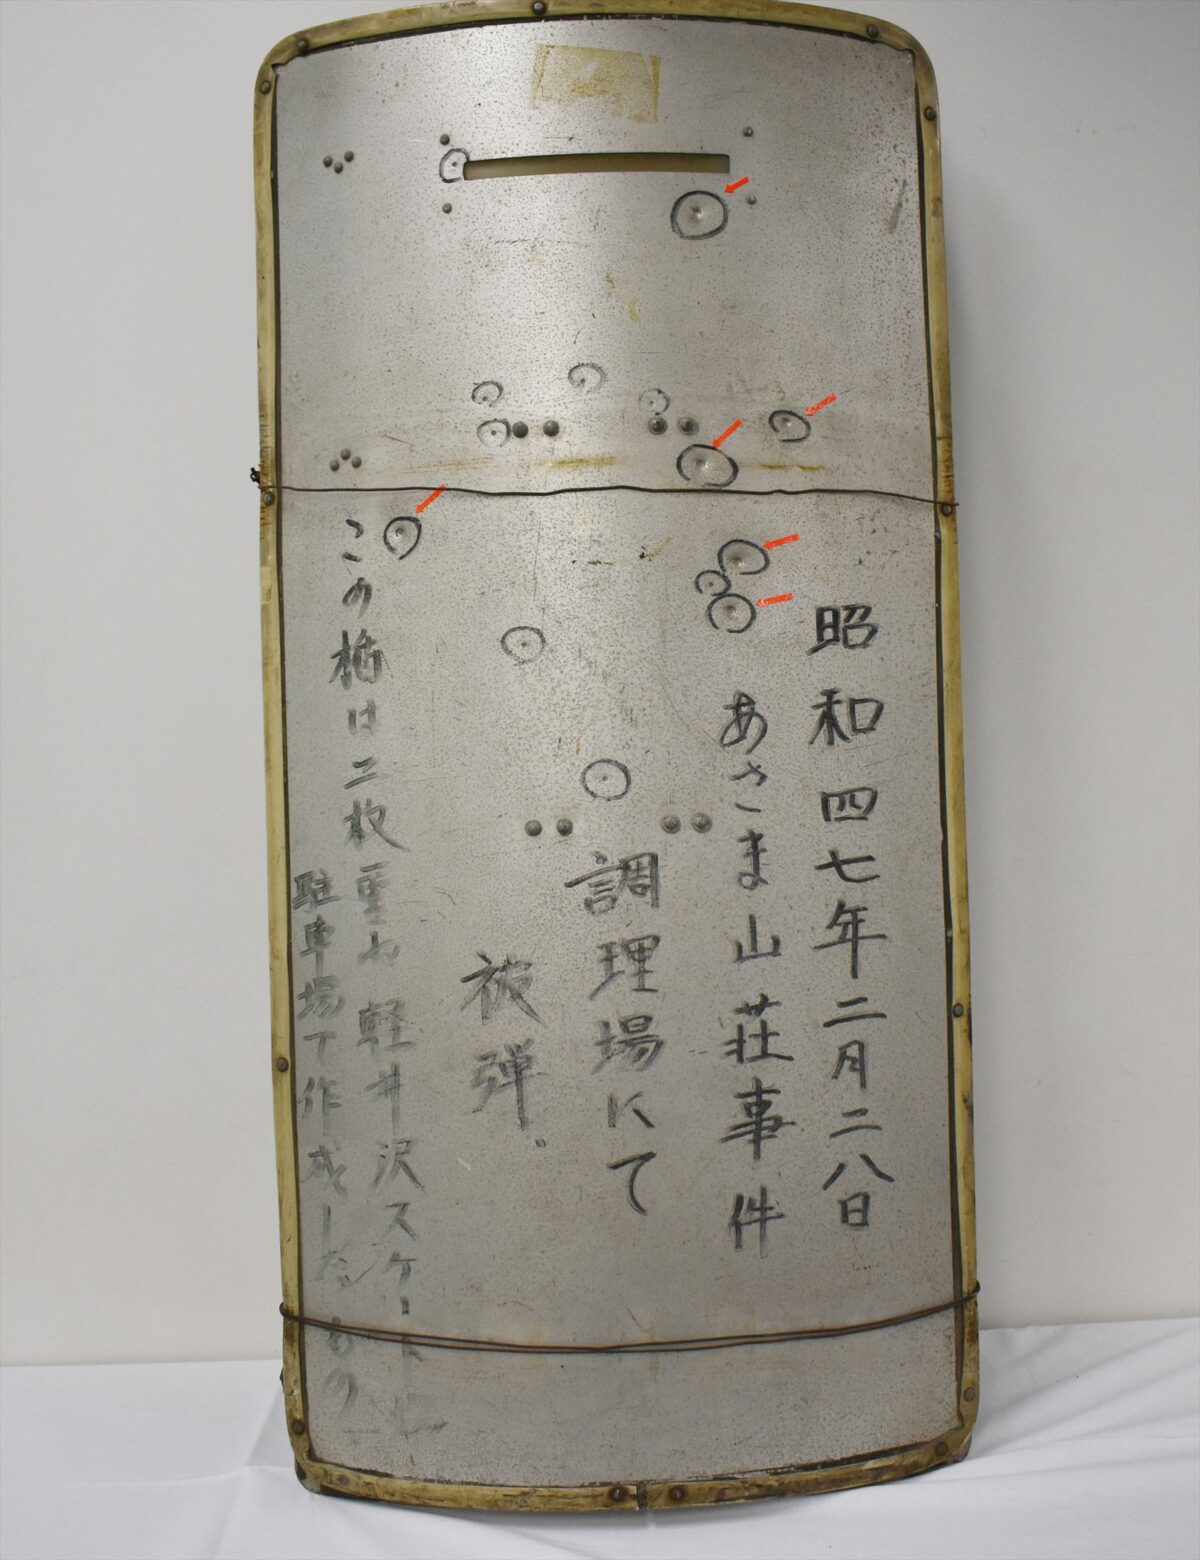 昭和四七年二月二八日
あさま山荘事件
調理場にて
被弾.
この楯は二枚重ね軽井沢スケート
駐車場で作成したもの